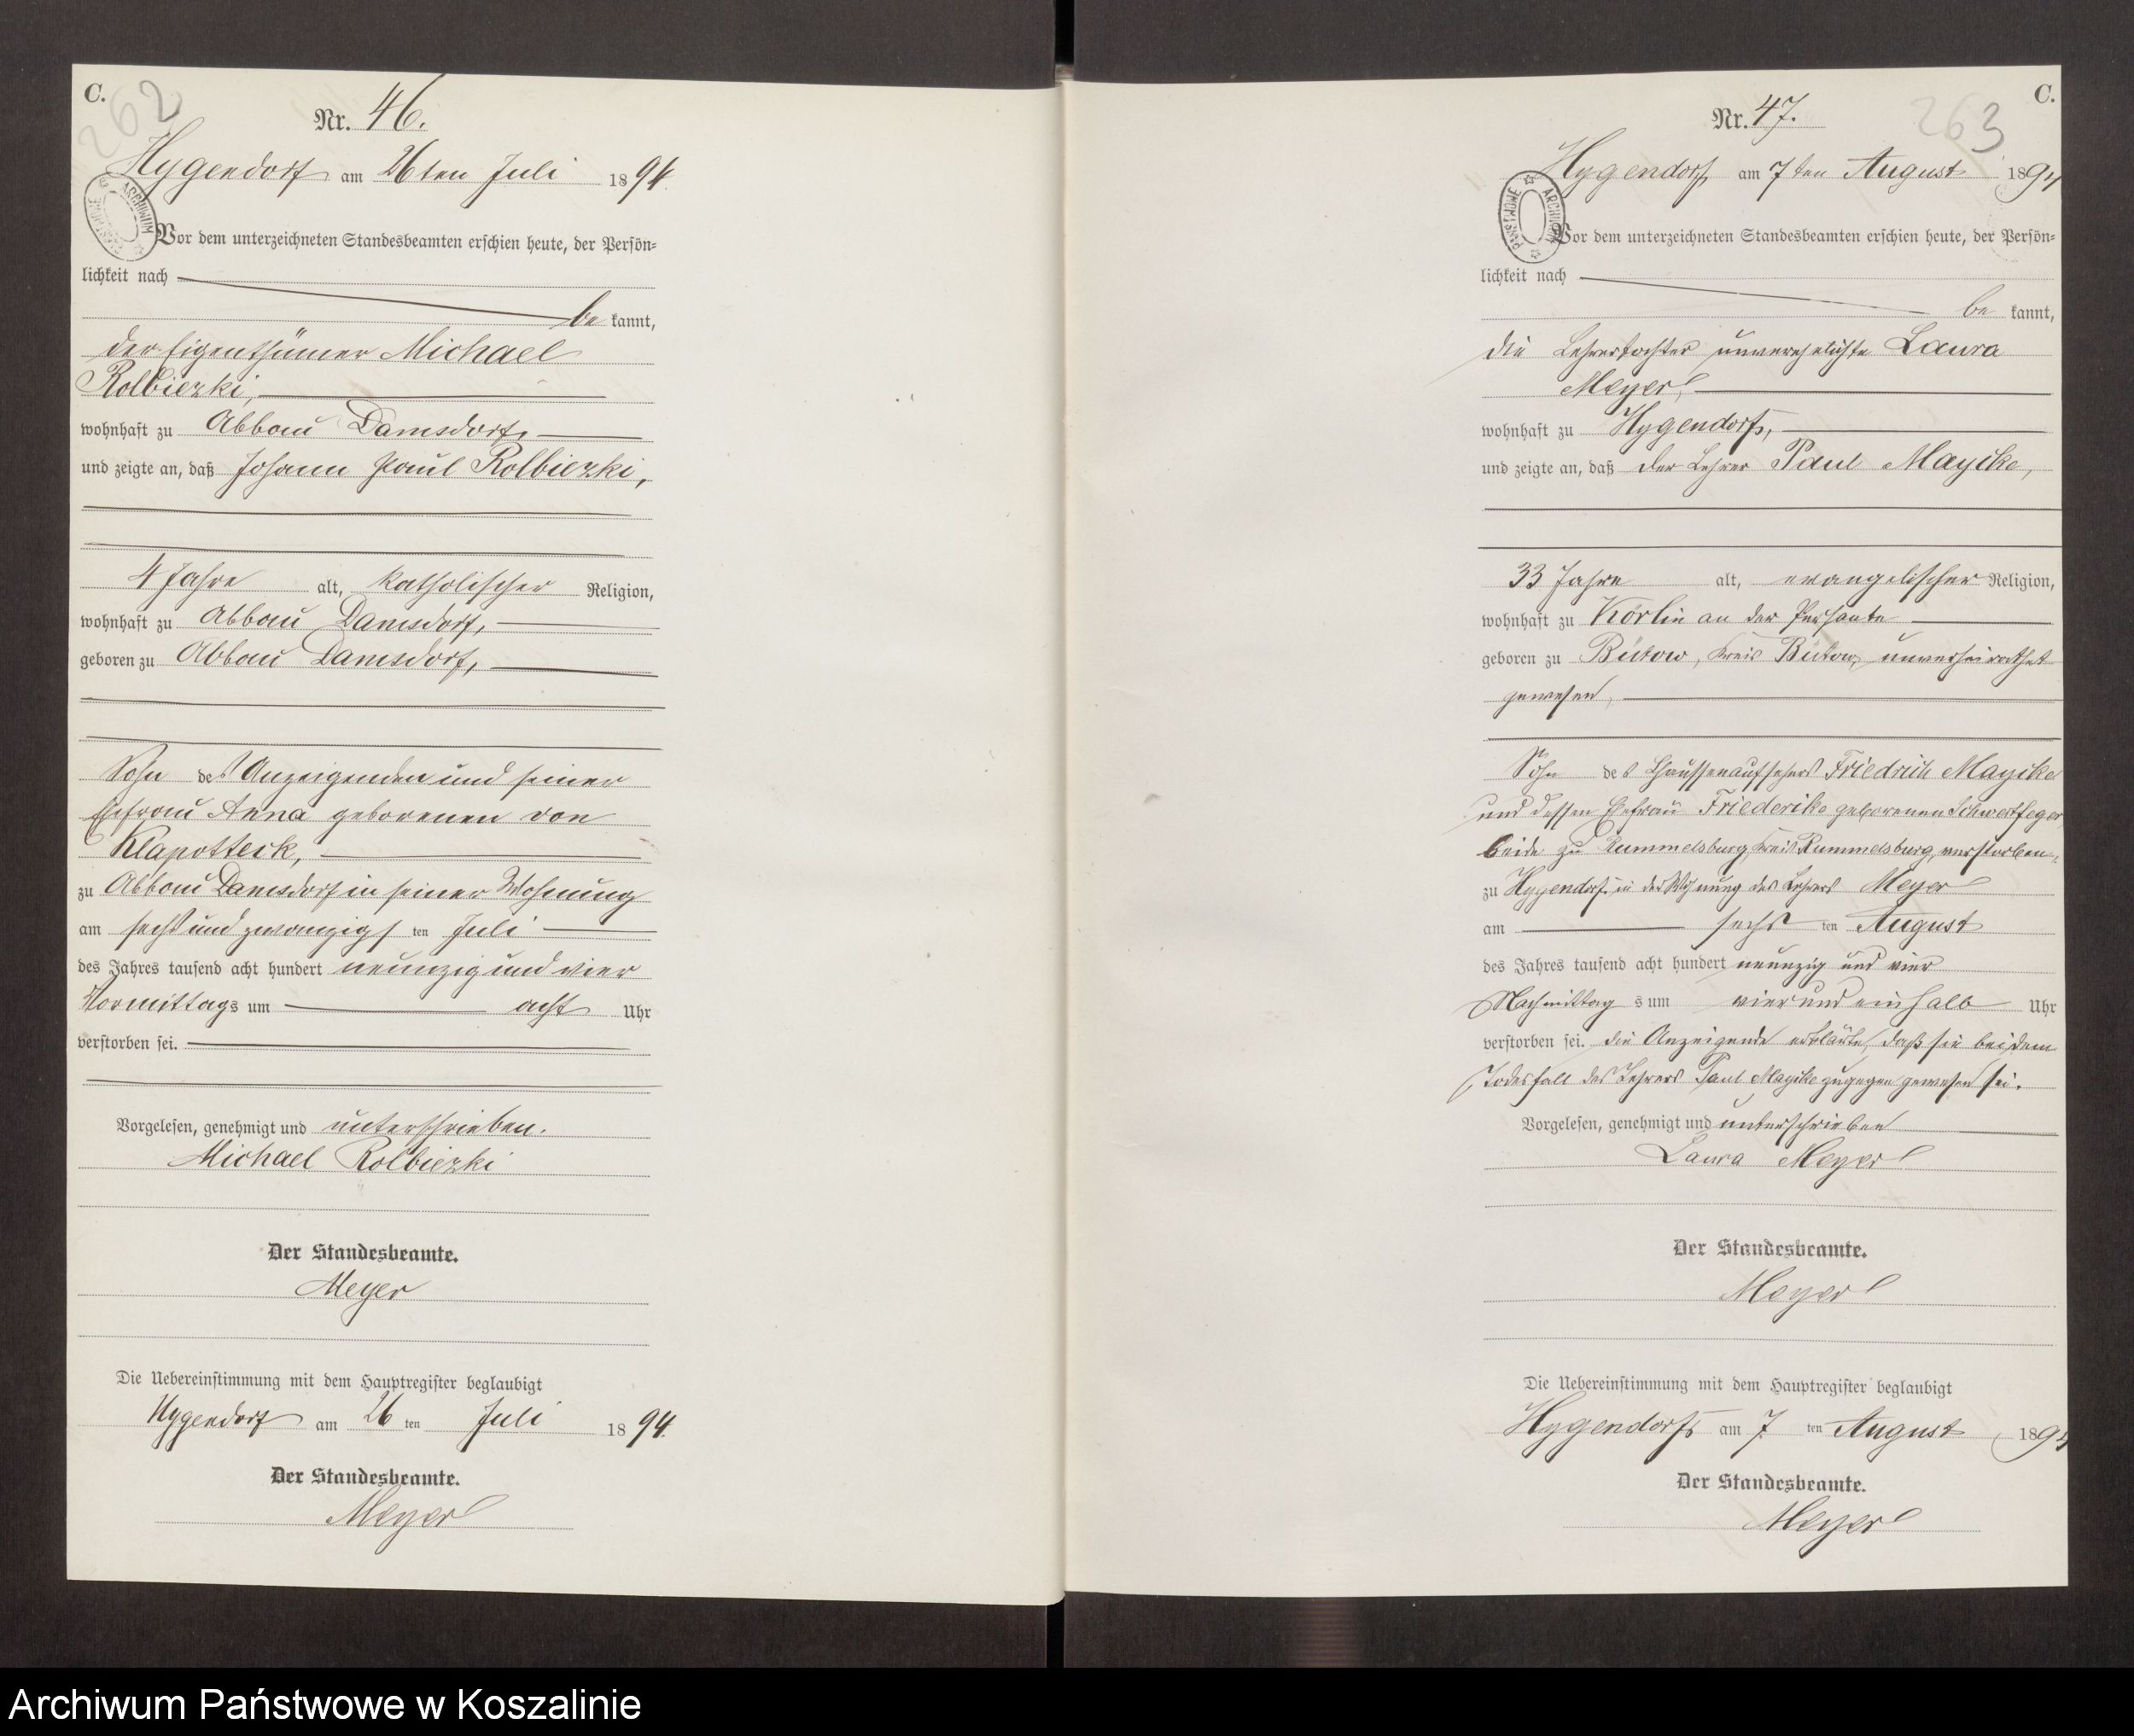 C.
262
Nr. 46.
Hygendorf am 26ten Juli 1894.
Vor dem unterzeichneten Standesbeamten erschien heute, der Persön=
lichkeit nach
be kannt,
der Eigenthümer Michael
Rolbiezki,
wohnhaft zu Abbau Damsdorf,
und zeigte an, daß Johann Paul Rolbiezki,
4 Jahre alt, katholischer Religion,
wohnhaft zu Abbau Damsdorf,
geboren zu Abbau Damsdorf,
Sohn des Anzeigenden und seiner
Ehefrau Anna geborenen von
Klapotteck,
zu Abbau Damsdorf in seiner Wohnung
am sechs und zwanzigs ten Juli
des Jahres tausend acht hundert neunzig und vier
Vormittags um acht Uhr
verstorben sei.
Vorgelesen, genehmigt und unterschrieben.
Michael Rolbiezki
Der Standesbeamte.
Meyer
Die Uebereinstimmung mit dem Hauptregister beglaubigt
Hygendorf am 26 ten Juli 1894.
Der Standesbeamte.
Meyer
C.
263
Nr. 47.
Hygendorf, am 7ten August 1894
Vor dem unterzeichneten Standesbeamten erschien heute, der Persön=
lichkeit nach
be kannt,
die Lehrertochter unverehelichte Laura
Meyer,
wohnhaft zu Hygendorf,
und zeigte an, daß der Lehrer Paul Mayike,
33 Jahre alt, evangelischer Religion,
wohnhaft zu Körlin an der Persante
geboren zu Bütow, Kreis Bütow, unverheirathet
gewesen,
Sohn des Chausseeaufsehers Friedrich Mayike
und dessen Ehefrau Friederike geborenen Schwertfeger
beide zu Rummelsburg, Kreis Rummelsburg, verstorben,
zu Hygendorf in der Wohnung des Lehrers Meyer
am sechs ten August
des Jahres tausend acht hundert neunzig und vier
Nachmittag s um vier und einhalb Uhr
verstorben sei. die Anzeigende erklärte, daß sie bei dem
Todesfall des Lehrers Paul Mayike zugegen gewesen sei.
Vorgelesen, genehmigt und unterschrieben
Laura Meyer
Der Standesbeamte.
Meyer
Die Uebereinstimmung mit dem Hauptregister beglaubigt
Hygendorf am 7. ten August 1894
Der Standesbeamte.
Meyer
ARCHIWUM PAŃSTWOWE
ARCHIWUM PAŃSTWOWE
Archiwum Państwowe w Koszalinie